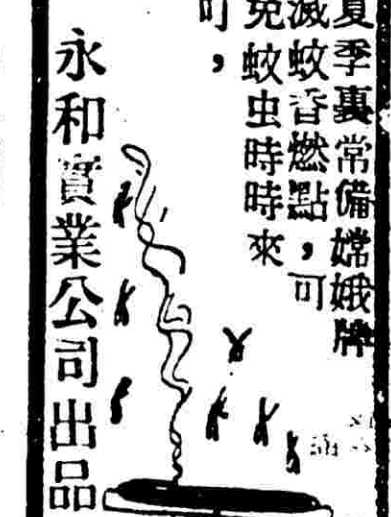 夏季裏常備嫦娥牌
滅蚊香燃點，可
免蚊虫時時來
叮，
永和實業公司出品